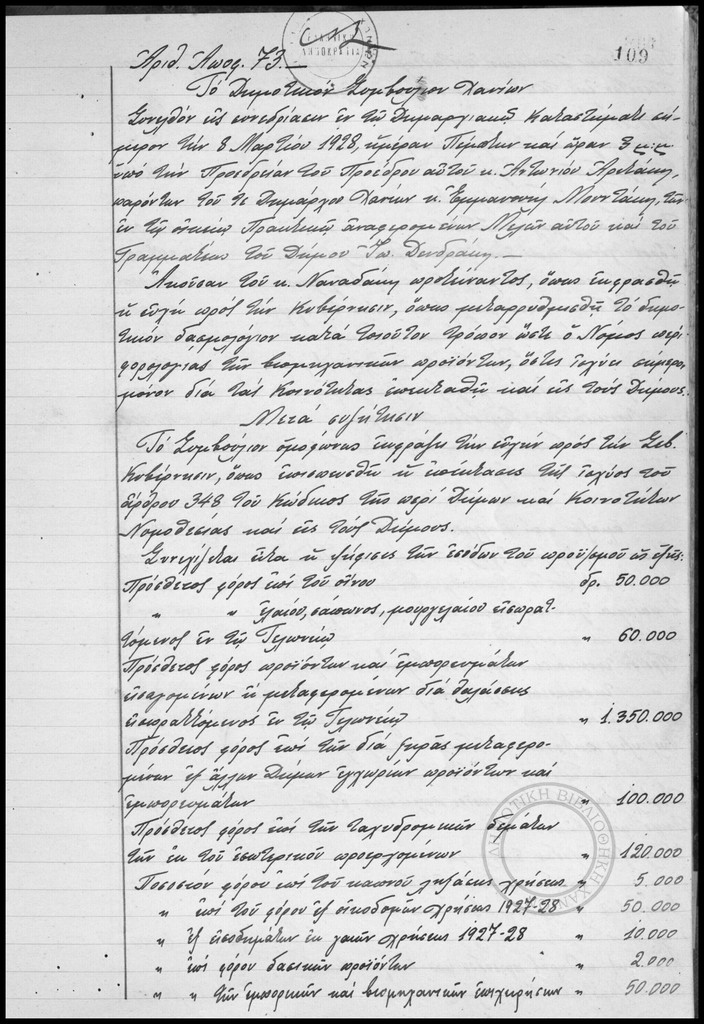 109
Ἀριθ. Ἀποφ. 73.—
Τὸ Δημοτικὸν Συμβούλιον Χανίων
Συνελθὸν εἰς συνεδρίασιν ἐν τῷ Δημαρχιακῷ Καταστήματι σή-
μερον τὴν 8 Μαρτίου 1928, ἡμέραν Πέμπτην καὶ ὥραν 3 μ.μ.
ὑπὸ τὴν Προεδρείαν τοῦ Προέδρου αὐτοῦ κ. Ἀντωνίου
παρόντων τοῦ τε Δημάρχου Χανίων κ. Ἐμμανουὴλ Μουντάκη, τῶν
ἐν τῷ οἰκείῳ Πρακτικῷ ἀναφερομένων Μελῶν αὐτοῦ καὶ τοῦ
Γραμματέως τοῦ Δήμου Ἰω. Δενδράκη.—
Ἀκοῦσαν τοῦ κ. Ναναδάκη προτείναντος, ὅπως ἐκφρασθῇ
ἡ εὐχὴ πρὸς τὴν Κυβέρνησιν, ὅπως μεταρρυθμισθῇ τὸ δημο-
τικὸν δασμολόγιον κατὰ τοιοῦτον τρόπον ὥστε ὁ Νόμος περὶ
φορολογίας τῶν βιομηχανικῶν προϊόντων, ὅστις ἰσχύει σήμερον
μόνον διὰ τὰς Κοινότητας ἐπεκταθῇ καὶ εἰς τοὺς Δήμους.
Μετὰ συζήτησιν
Τὸ Συμβούλιον ὁμοφώνως ἐκφράζει τὴν εὐχὴν πρὸς τὴν Σεβ.
Κυβέρνησιν, ὅπως ἐπισπευσθῇ ἡ ἐπέκτασις τῆς ἰσχύος τοῦ
ἄρθρου 348 τοῦ Κώδικος τῆς περὶ Δήμων καὶ Κοινοτήτων
Νομοθεσίας καὶ εἰς τοὺς Δήμους.
Συνεχίζεται εἶτα ἡ ψήφισις τῶν ἐσόδων τοῦ προϋπ/σμοῦ ὡς ἑξῆς:
Πρόσθετος φόρος ἐπὶ τοῦ οἴνου δρ. 50.000
" " ἐλαίου, σάπωνος, μουργελαίου εἰσπρατ-
τόμενος ἐν τῷ Τελωνείῳ " 60.000
Πρόσθετος φόρος προϊόντων καὶ ἐμπορευμάτων
εἰσαγομένων ἢ μεταφερομένων διὰ θαλάσσης
εἰσπραττόμενος ἐν τῷ Τελωνείῳ " 1.350.000
Πρόσθετος φόρος ἐπὶ τῶν διὰ ξηρᾶς μεταφερο-
μένων ἐξ ἄλλων Δήμων ἐγχωρίων προϊόντων καὶ
ἐμπορευμάτων " 100.000
Πρόσθετος φόρος ἐπὶ τῶν ταχυδρομικῶν δεμάτων
τῶν ἐκ τοῦ ἐσωτερικοῦ προερχομένων " 120.000
Ποσοστὸν φόρου ἐπὶ τοῦ καπνοῦ ληξάσης χρήσεως " 5.000
" ἐπὶ τοῦ φόρου ἐξ οἰκοδομῶν χρήσεως 1927-28 " 50.000
" ἐξ εἰσοδημάτων ἐκ γαιῶν χρήσεως 1927-28 " 10.000
" ἐπὶ φόρου δασικῶν προϊόντων " 2.000
" " τῶν ἐμπορικῶν καὶ βιομηχανικῶν ἐπιχειρήσεων " 50.000
ΔΗΜΟΤΙΚΗ ΒΙΒΛΙΟΘΗΚΗ ΧΑΝ